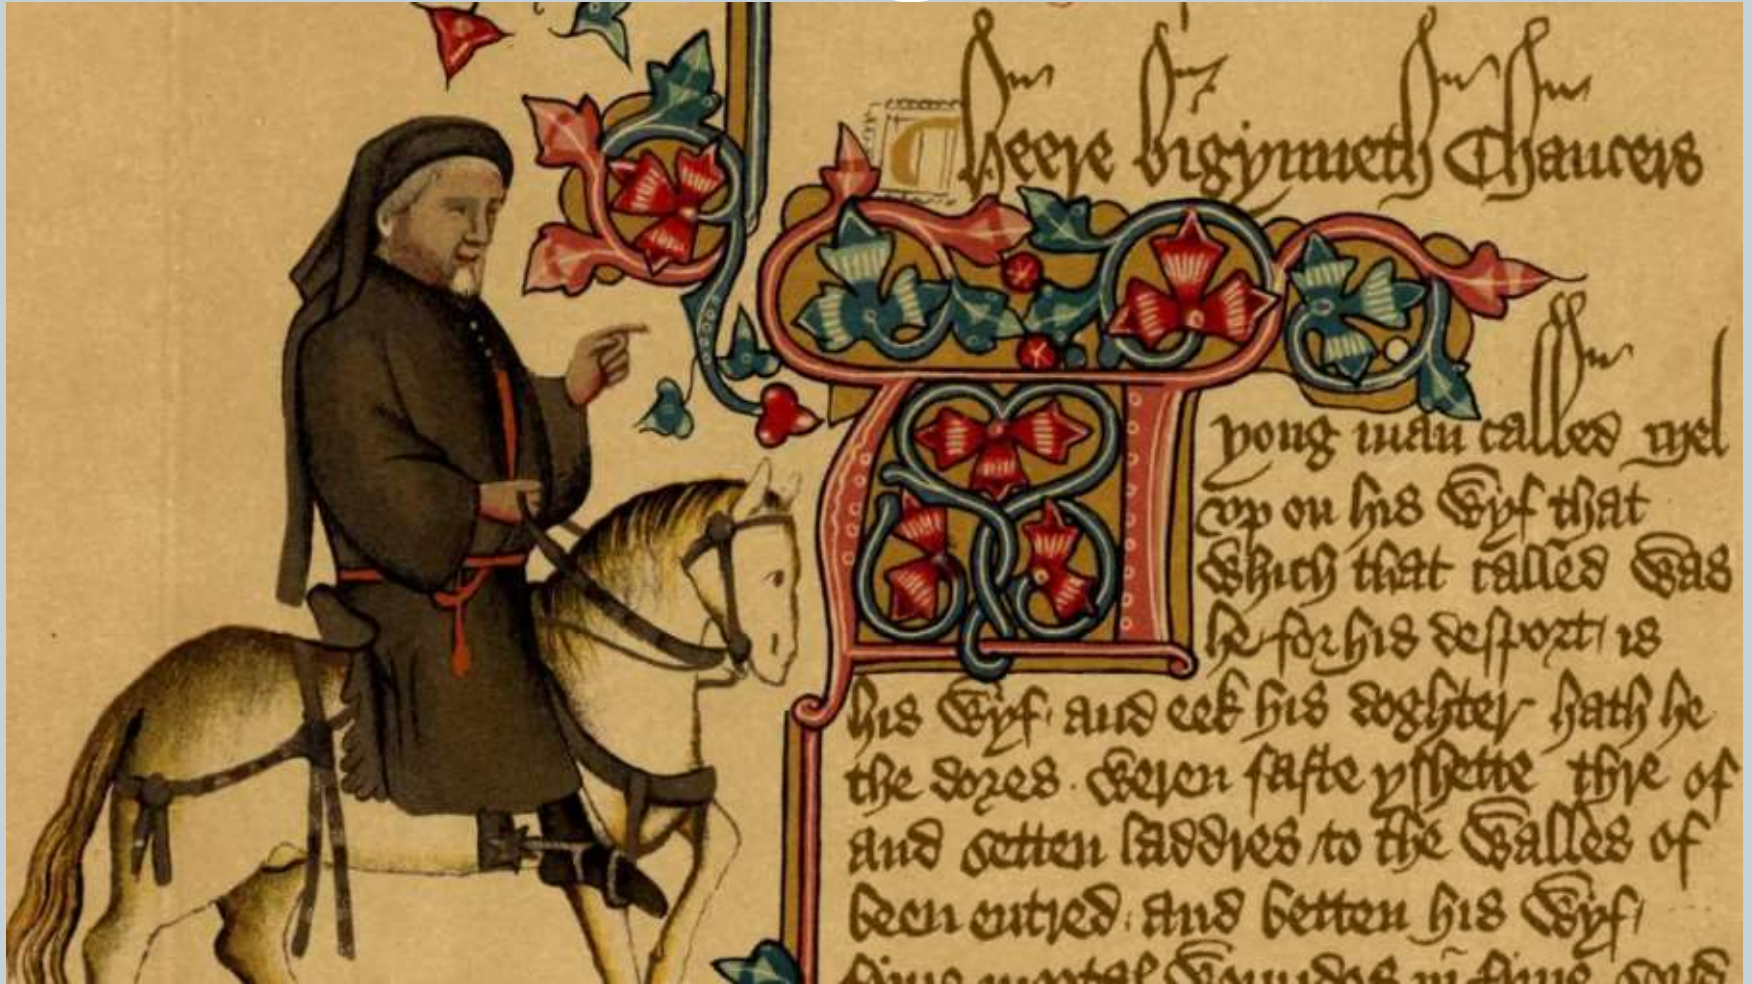 Heere bigynneth Chaucers
A yong man called Mel
vp on his wyf that
which that called was
he for his desport / is
his wyf / and eek his doghter hath he
the dores . weren faste yshette thre of
and setten laddres / to the walles of
been entred / and betten his wyf /
fyue mortal woundes in fyue sond